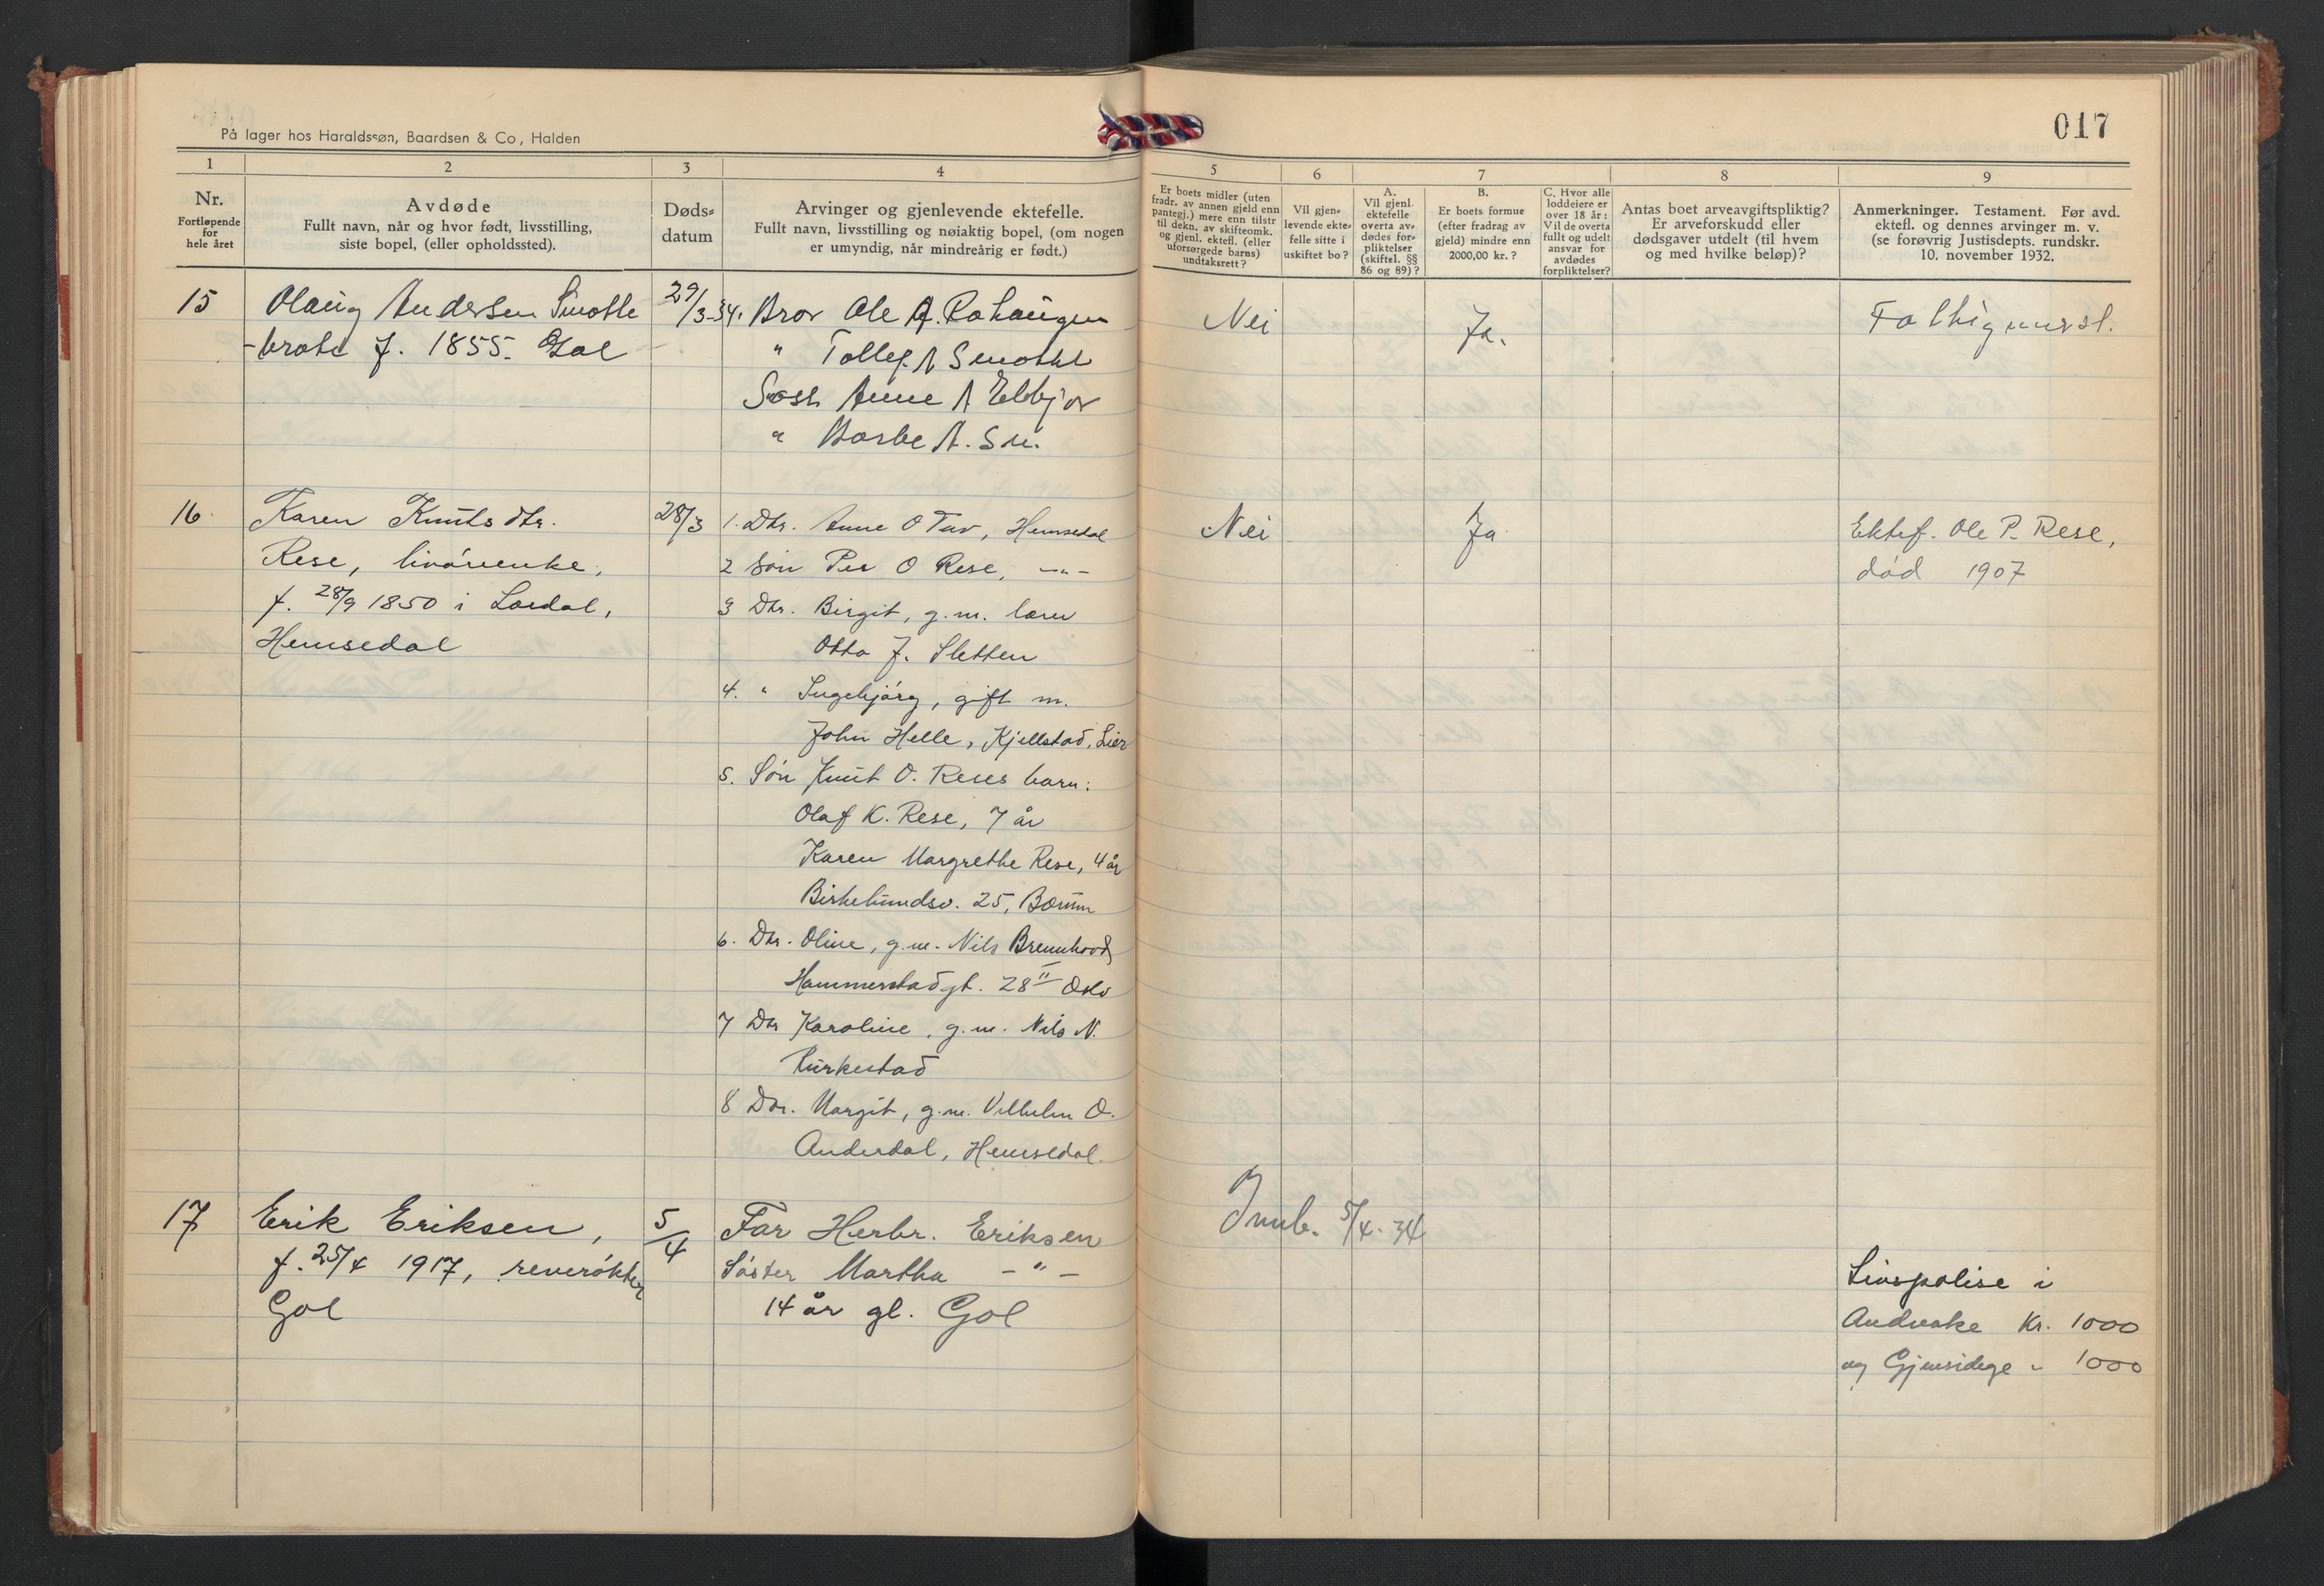 017
På lager hos Haraldssøn, Baardsen & Co, Halden
1
2
3
4
5
6
7
8
9
Nr.
Fortløpende
for
hele året
Avdøde
Fullt navn, når og hvor født, livsstilling,
siste bopel, (eller opholdssted).
Døds-
datum
Arvinger og gjenlevende ektefelle.
Fullt navn, livsstilling og nøiaktig bopel, (om nogen
er umyndig, når mindreårig er født.)
Er boets midler (uten
fradr. av annen gjeld enn
pantegj.) mere enn tilstr
til dekn. av skifteomk.
og gjenl. ektefl. (eller
uforsørgede barns)
undtaksrett?
Vil gjen-
levende ekte-
felle sitte i
uskiftet bo?
A.
Vil gjenl.
ektefelle
overta av-
dødes for-
pliktelser
(skiftel. §§
86 og 89)?
B.
Er boets formue
(efter fradrag av
gjeld) mindre enn
2000,00 kr.?
C. Hvor alle
loddeiere er
over 18 år:
Vil de overta
fullt og udelt
ansvar for
avdødes
forpliktelser?
Antas boet arveavgiftspliktig?
Er arveforskudd eller
dødsgaver utdelt (til hvem
og med hvilke beløp)?
Anmerkninger. Testament. Før avd.
ektefl. og dennes arvinger m. v.
(se forøvrig Justisdepts. rundskr.
10. november 1932.
15
Olaug Andersen
f. 1855. Gol
29/3-34.
Bror Ole A.
" Tollef. A
Søst. Anne A
" Barbe A. Sm.
Nei
Ja.
16
Karen Knutsdtr.
Rese, livørenke,
f. 28/9 1850 i Lærdal,
Hemsedal
28/3
1. Dtr. Anne O Tuv, Hemsedal
2 Søn Per O Rese, -"-
3 Dtr. Birgit, g.m. lærer
Otto J. Sletten
4. " Ingebjørg, gift m.
John Helle, Kjellstad, Lier
5. Søn Knut O. Reses barn:
Olaf K. Rese, 7 år
Karen Margrethe Rese, 4 år
Birkelundsv. 25, Bærum
6. Dtr. Oline, g.m. Nils Brennhovd,
Hammerstadgt. 28 II Oslo
7 Dtr Karoline, g.m. Nils N.
Kirkestad
8 Dtr. Margit, g.m. Vilhelm O.
Anderdal, Hemsedal.
Nei
Ja
Ektef. Ole P. Rese,
død 1907
17
Erik Eriksen,
f. 25/4 1917, reverøkter
Gol
5/4
Far Herbr. Eriksen
Søster Martha -"-
14 år gl. Gol
Innb. 5/4. 34
Livspolise i
Andvake Kr. 1000
og Gjensidige " 1000